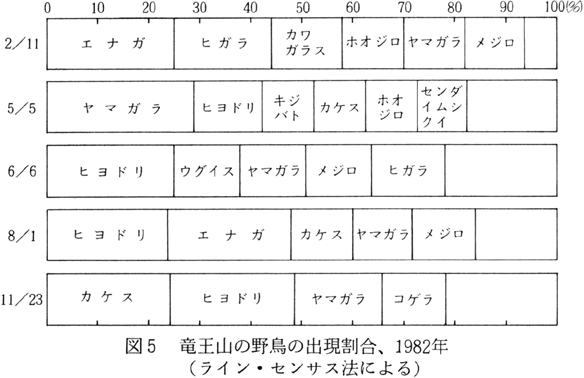 0 10 20 30 40 50 60 70 80 90 100(%)
2/11 エナガ ヒガラ カワガラス ホオジロ ヤマガラ メジロ
5/5 ヤマガラ ヒヨドリ キジバト カケス ホオジロ センダイムシクイ
6/6 ヒヨドリ ウグイス ヤマガラ メジロ ヒガラ
8/1 ヒヨドリ エナガ カケス ヤマガラ メジロ
11/23 カケス ヒヨドリ ヤマガラ コゲラ
図5 竜王山の野鳥の出現割合、1982年
(ライン・センサス法による)